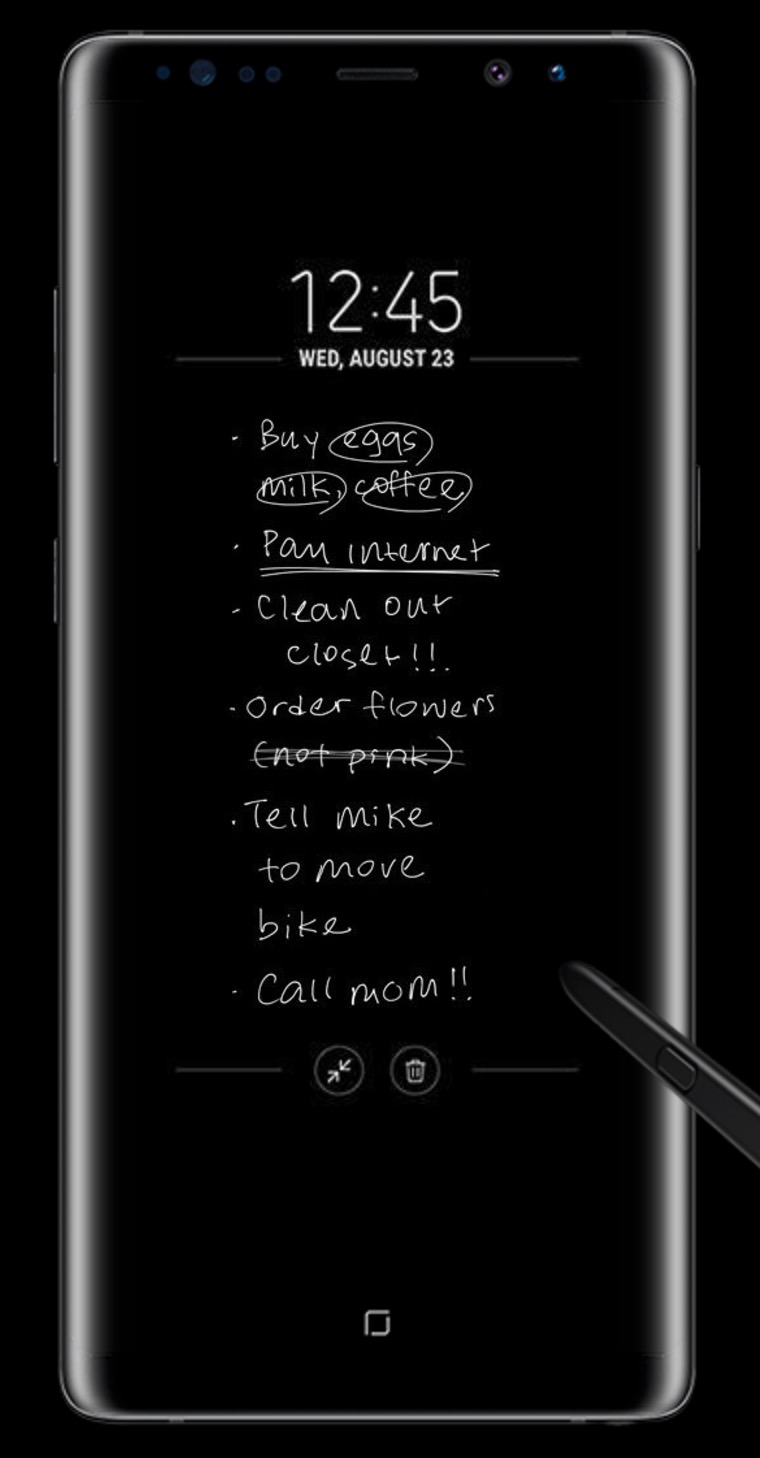 12:45
WED, AUGUST 23
· Buy eggs
milk, coffee
· Pay internet
· Clean out
closet!!!
· Order flowers
(not pink)
· Tell mike
to move
bike
· Call mom!!